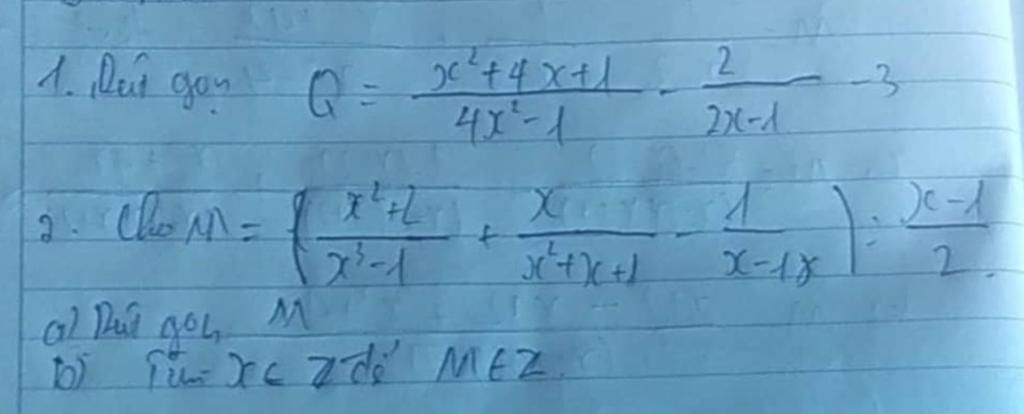 1. Rút gọn Q = \frac{x²+4x+1}{4x²-1} - \frac{2}{2x-1} - 3
2. Cho M = (\frac{x²+2}{x³-1} + \frac{x}{x²+x+1} - \frac{1}{x-1}) : \frac{x-1}{2}.
a) Rút gọn M
b) Tìm x ∈ Z để M ∈ Z.